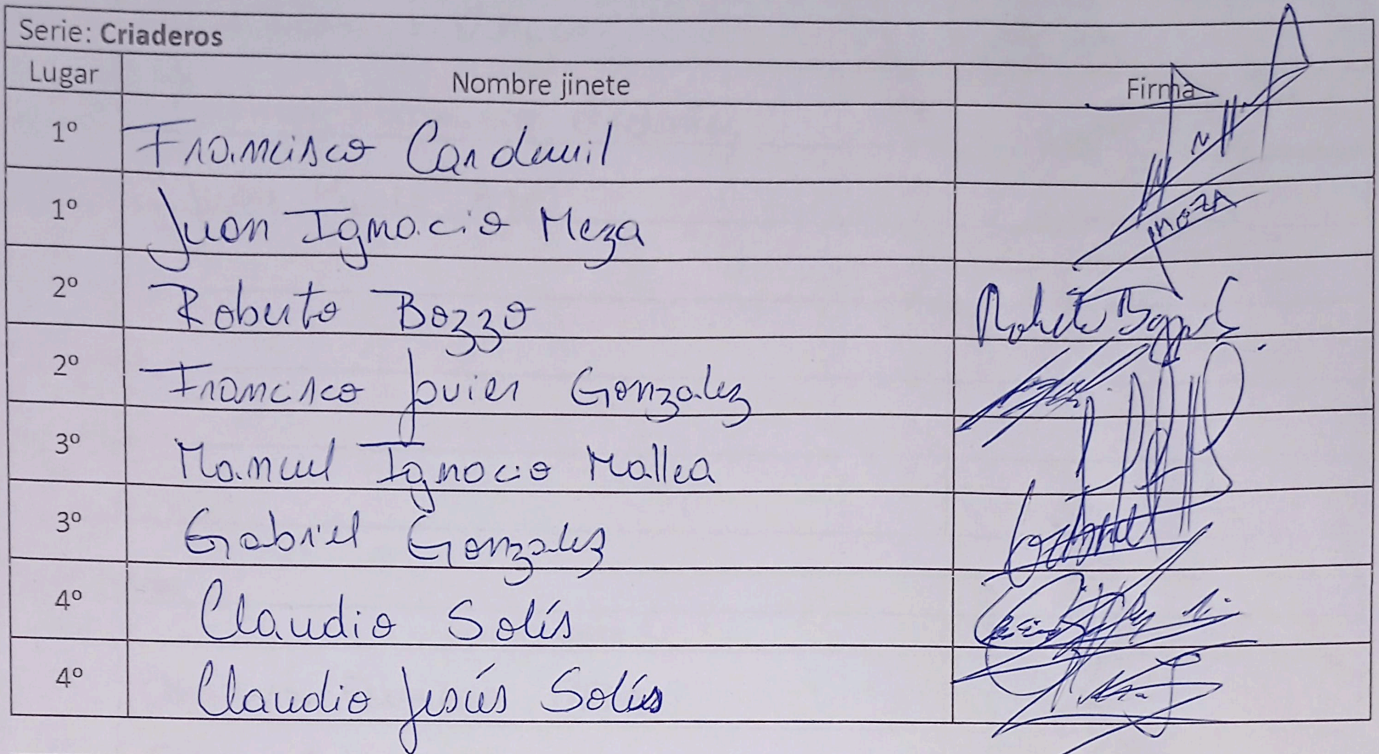 Serie: Criaderos
Lugar Nombre jinete Firma
1º Francisco Cardemil
1º Juan Ignacio Meza MEZA
2º Roberto Bozzo
2º Francisco Javier Gonzalez
3º Manuel Ignacio Mallea
3º Gabriel Gonzalez Gabriel
4º Claudio Solís
4º Claudio Jesús Solís